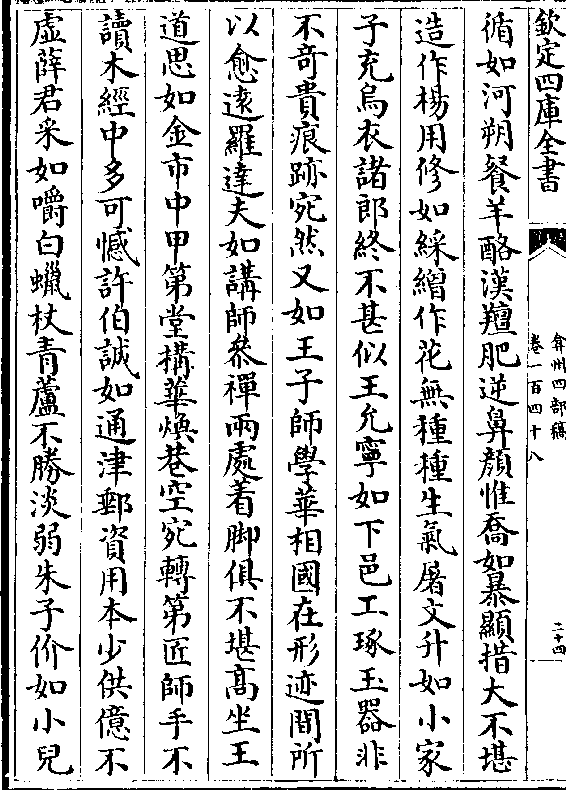 欽定四庫全書
弇州四部稿
卷一百四十八
二十四
循如河朔餐羊酪漢羶肥逆鼻顏惟喬如暴顯措大不堪
造作楊用修如綵繒作花無種種生氣屠文升如小家
子充烏衣諸郎終不甚似王允寧如下邑工琢玉器非
不奇貴痕跡宛然又如王子師學華相國在形迹間所
以愈逺羅達夫如講師參禪兩處着脚俱不堪髙坐王
道思如金市中甲第堂搆華煥巷空宛轉第匠師手不
讀木經中多可憾許伯誠如通津郵資用本少供億不
虛薛君采如嚼白蠟杖青蘆不勝淡弱朱子价如小兒